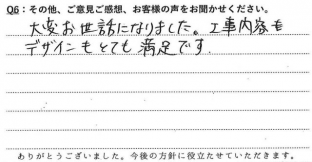 Q6：その他、ご意見ご感想、お客様の声をお聞かせください。
大変お世話になりました。工事内容も
デザインもとても満足です。
ありがとうございました。今後の方針に役立たせていただきます。